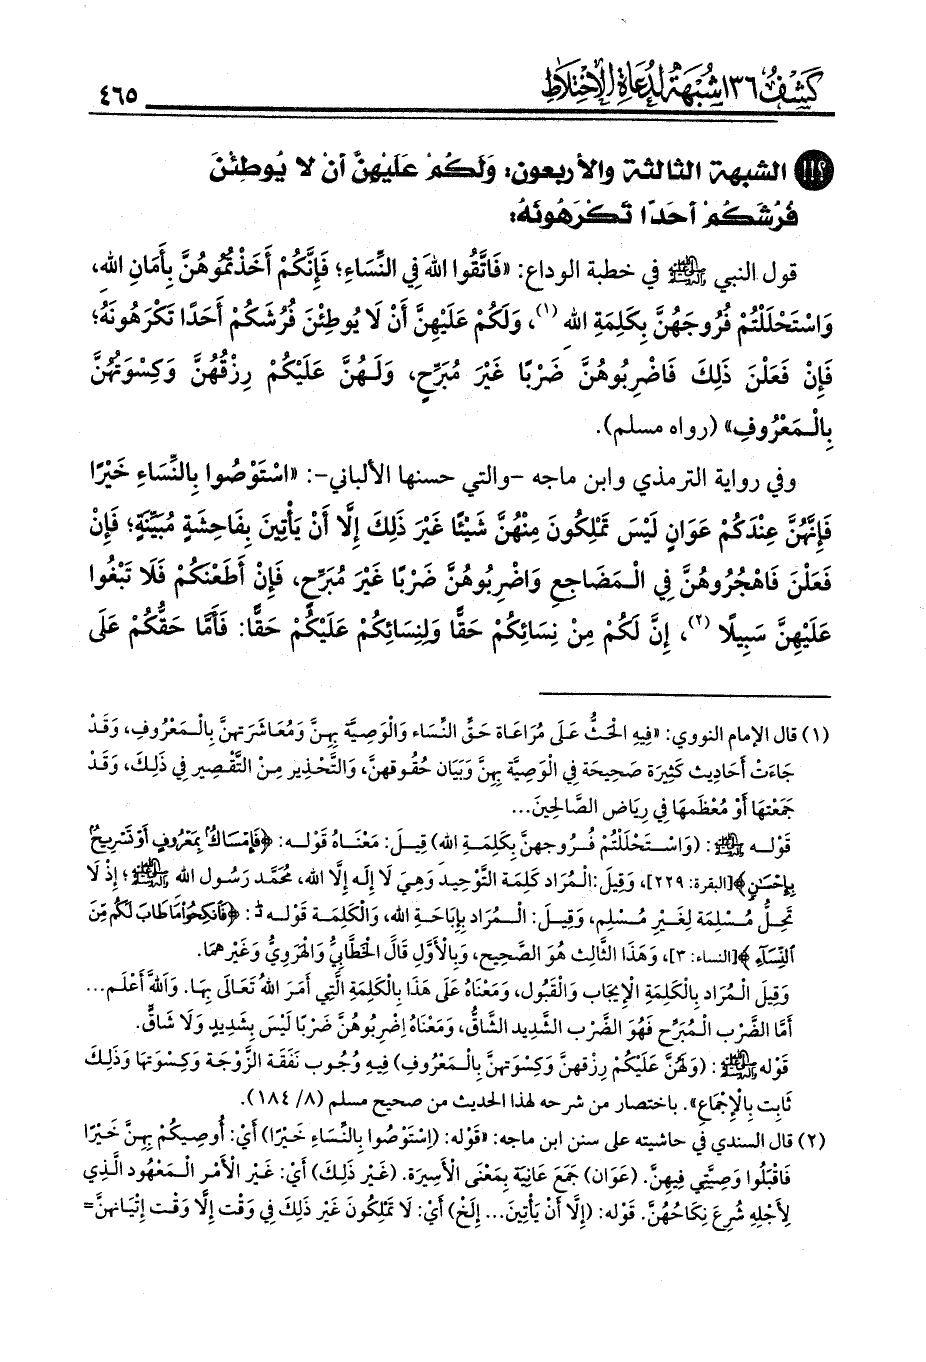 كشف ١٣٦ شبهة لدعاة الاختلاط
٤٦٥
الشبهة الثالثة والأربعون: وَلَكُمْ عَلَيْهِنَّ أَنْ لا يُوطِئْنَ
فُرُشَكُمْ أحَدًا تَكْرَهُونَهُ:
قول النبي ﷺ في خطبة الوداع: «فَاتَّقُوا اللهَ فِي النِّسَاءِ؛ فَإِنَّكُمْ أَخَذْتُمُوهُنَّ بِأَمَانِ اللهِ،
وَاسْتَحْلَلْتُمْ فُرُوجَهُنَّ بِكَلِمَةِ اللهِ (١)، وَلَكُمْ عَلَيْهِنَّ أَنْ لَا يُوطِئْنَ فُرُشَكُمْ أَحَدًا تَكْرَهُونَهُ؛
فَإِنْ فَعَلْنَ ذَلِكَ فَاضْرِبُوهُنَّ ضَرْبًا غَيْرَ مُبَرِّحٍ، وَلَهُنَّ عَلَيْكُمْ رِزْقُهُنَّ وَكِسْوَتُهُنَّ
بِالْـمَعْرُوفِ» (رواه مسلم).
وفي رواية الترمذي وابن ماجه -والتي حسنها الألباني-: «اسْتَوْصُوا بِالنِّسَاءِ خَيْرًا
فَإِنَّهُنَّ عِنْدَكُمْ عَوَانٍ لَيْسَ تَمْلِكُونَ مِنْهُنَّ شَيْئًا غَيْرَ ذَلِكَ إِلَّا أَنْ يَأْتِينَ بِفَاحِشَةٍ مُبَيِّنَةٍ؛ فَإِنْ
فَعَلْنَ فَاهْجُرُوهُنَّ فِي الْـمَضَاجِعِ وَاضْرِبُوهُنَّ ضَرْبًا غَيْرَ مُبَرِّحٍ، فَإِنْ أَطَعْنَكُمْ فَلَا تَبْغُوا
عَلَيْهِنَّ سَبِيلًا (٢)، إِنَّ لَكُمْ مِنْ نِسَائِكُمْ حَقًّا وَلِنِسَائِكُمْ عَلَيْكُمْ حَقًّا: فَأَمَّا حَقُّكُمْ عَلَى
(١) قال الإمام النووي: «فِيهِ الْحَثُّ عَلَى مُرَاعَاة حَقِّ النِّسَاء وَالْوَصِيَّة بِهِنَّ وَمُعَاشَرَتهنَّ بِالْـمَعْرُوفِ، وَقَدْ
جَاءَتْ أَحَادِيث كَثِيرَة صَحِيحَة فِي الْوَصِيَّة بِهِنَّ وَبَيَان حُقُوقهنَّ، وَالتَّحْذِير مِنْ التَّقْصِير فِي ذَلِكَ، وَقَدْ
جَمَعْتهَا أَوْ مُعْظَمهَا فِي رِيَاض الصَّالِحِينَ...
قَوْلـه ﷺ: (وَاسْـتَحْلَلْتُمْ فُـرُوجهنَّ بِكَلِمَةِ الله) قِيلَ: مَعْنَاهُ قَوْلـه: ﴿فَإِمْسَاكٌ بِمَعْرُوفٍ أَوْ تَسْرِيحٌ
بِإِحْسَانٍ﴾[البقرة: ٢٢٩]، وَقِيلَ: الْـمُرَاد كَلِمَة التَّوْحِيد وَهِيَ لَا إِلَه إِلَّا الله، مُحَمَّد رَسُول الله ﷺ؛ إِذْ لَا
تَحِلُّ مُـسْلِمَة لِغَيْرِ مُـسْلِم، وَقِيلَ: الْـمُرَاد بِإِبَاحَةِ الله، وَالْكَلِمَة قَوْلـه: ﴿فَانْكِحُوا مَا طَابَ لَكُمْ مِنَ
النِّسَاءِ﴾[النساء: ٣]، وَهَذَا الثَّالِث هُوَ الصَّحِيح، وَبِالْأَوَّلِ قَالَ الْخَطَّابِيُّ وَالْهَرَوِيُّ وَغَيْرهمَا.
وَقِيلَ الْـمُرَاد بِالْكَلِمَةِ الْإِيجَاب وَالْقَبُول، وَمَعْنَاهُ عَلَى هَذَا بِالْكَلِمَةِ الَّتِي أَمَرَ اللهُ تَعَالَى بِهَا. وَاللهُ أَعْلَم...
أَمَّا الضَّرْب الْـمُبَرِّح فَهُوَ الضَّرْب الشَّدِيد الشَّاقُّ، وَمَعْنَاهُ اِضْرِبُوهُنَّ ضَرْبًا لَيْسَ بِشَدِيدٍ وَلَا شَاقٍّ.
قَوْله ﷺ: (وَلَهُنَّ عَلَيْكُمْ رِزْقهنَّ وَكِسْوَتهنَّ بِالْـمَعْرُوفِ) فِيهِ وُجُوب نَفَقَة الزَّوْجَة وَكِسْوَتهَا وَذَلِكَ
ثَابِت بِالْإِجْمَاعِ». باختصار من شرحه لهذا الحديث من صحيح مسلم (٨/ ١٨٤).
(٢) قال السندي في حاشيته على سنن ابن ماجه: «قَوْله: (اِسْتَوْصُوا بِالنِّسَاءِ خَيْرًا) أَيْ: أُوصِيكُمْ بِهِنَّ خَيْرًا
فَاقْبَلُوا وَصِيَّتِي فِيهِنَّ. (عَوَان) جَمَع عَانِيَة بِمَعْنَى الْأَسِيرَة. (غَيْر ذَلِكَ) أَيْ: غَيْر الْأَمْر الْـمَعْهُود الَّذِي
لِأَجْلِهِ شُرِعَ نِكَاحُهُنَّ. قَوْلُهُ: (إِلَّا أَنْ يَأْتِينَ... إِلَخْ) أَيْ: لَا تَمْلِكُونَ غَيْر ذَلِكَ فِي وَقْت إِلَّا وَقْت إِتْيَانهنَّ=